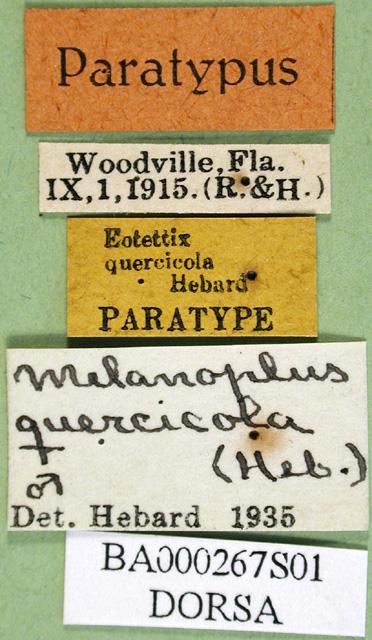 Paratypus
Woodville, Fla.
IX, 1, 1915. (R. & H.)
Eotettix
quercicola
Hebard
PARATYPE
Melanoplus
quercicola
♂ (Heb.)
Det. Hebard 1935
BA000267S01
DORSA